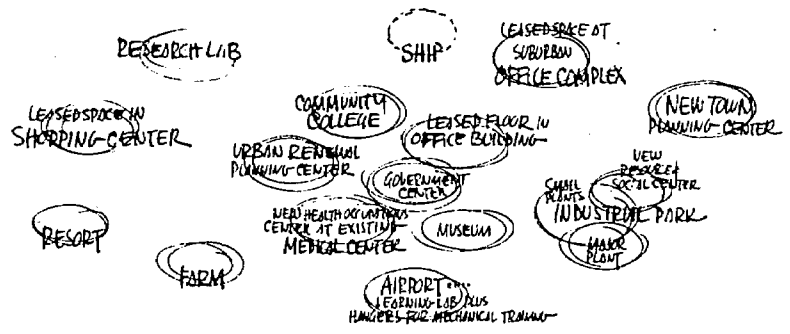 RESEARCH LAB
SHIP
LEASED SPACE AT
SUBURBAN
OFFICE COMPLEX
LEASED SPACE IN
SHOPPING CENTER
COMMUNITY
COLLEGE
LEASED FLOOR IN
OFFICE BUILDING
NEW TOWN
PLANNING CENTER
URBAN RENEWAL
PLANNING CENTER
GOVERNMENT
CENTER
NEW
RESOURCE &
SOCIAL CENTER
SMALL
PLANTS
INDUSTRIAL PARK
MAJOR
PLANT
RESORT
NEW HEALTH OCCUPATIONS
CENTER AT EXISTING
MEDICAL CENTER
MUSEUM
FARM
AIRPORT....
LEARNING LAB PLUS
HANGERS FOR MECHANICAL TRAINING